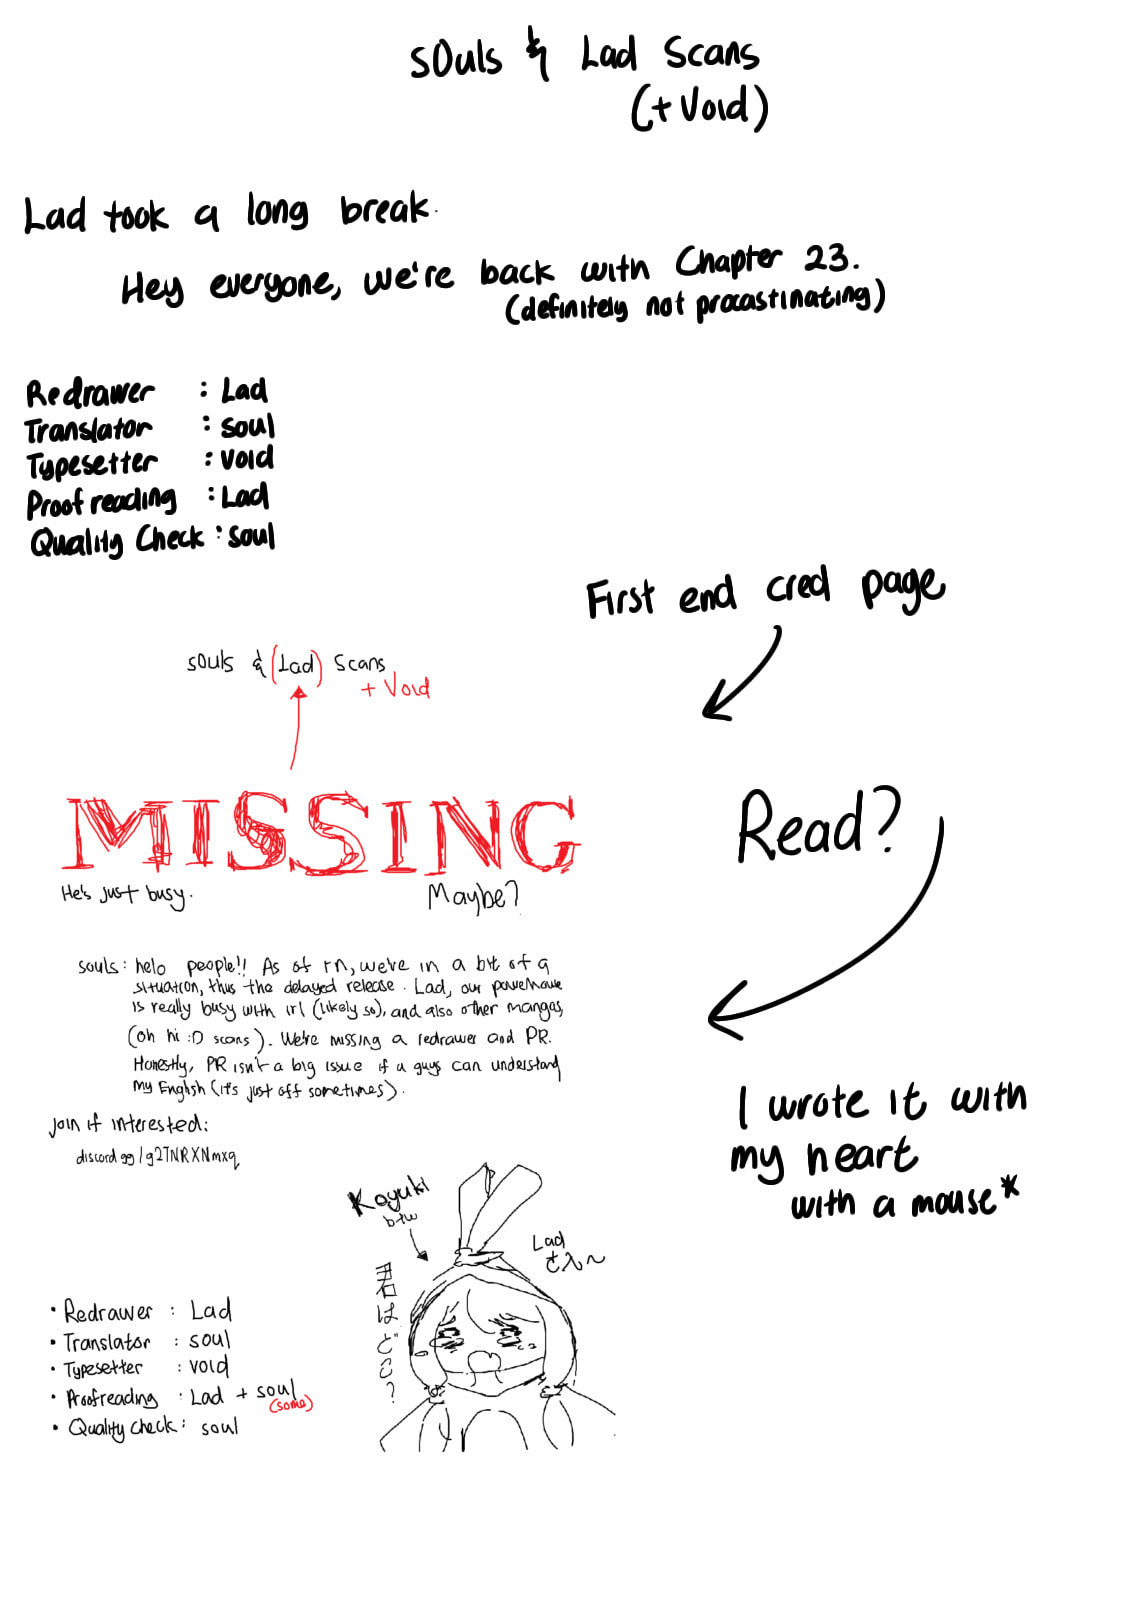 sOuls & Lad Scans
(+Void)
Lad took a long break.
Hey everyone, we're back with Chapter 23.
(definitely not procastinating)
Redrawer : Lad
Translator : soul
Typesetter : void
Proofreading : Lad
Quality Check : soul
First end cred page
sOuls & (Lad) Scans
+ Void
MISSING
He's just busy.
Maybe?
Read?
souls: helo people!! As of rn, we're in a bit of a
situation, thus the delayed release. Lad, our powerhouse
is really busy with irl (likely so), and also other mangas,
(oh hi :D scans). We're missing a redrawer and PR.
Honestly, PR isn't a big issue if a guys can understand
my English (it's just off sometimes).
Join if interested:
discord gg/g2TNRXNmxq
I wrote it with
my heart
with a mouse*
Koyuki
btw
Lad
さん〜
はどこ?
• Redrawer : Lad
• Translator : soul
• Typesetter : void
• Proofreading : Lad + soul
(some)
• Quality check : soul